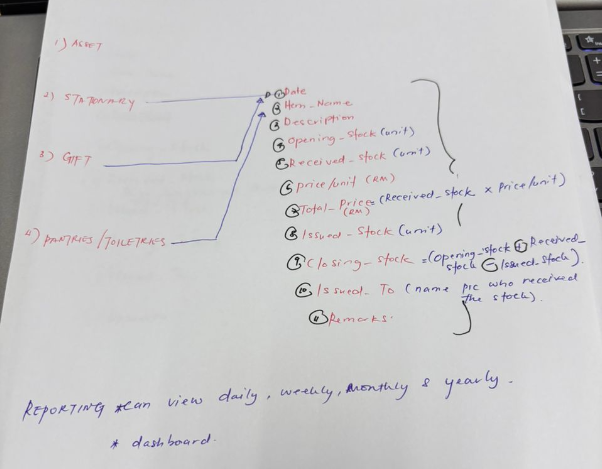 1) ASSET
2) STATONARY
3) GIFT
4) PANTRIES/TOILETRIES
① Date
② Item_Name
③ Description
④ Opening_stock (unit)
⑤ Received_stock (unit)
⑥ price/unit (RM)
⑦ Total_Price = (Received_stock x Price/unit)
(RM)
⑧ Issued_stock (unit)
⑨ Closing_stock = (Opening_stock + Received_
stock - Issued_stock).
⑩ Issued_To (name pic who received
the stock).
⑪ Remarks.
REPORTING * can view daily, weekly, monthly & yearly.
* dashboard.